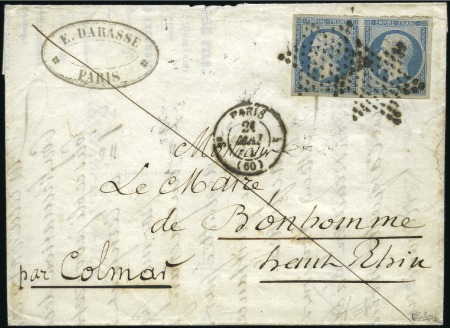 E. DARASSE
PARIS
EMPIRE FRANC
EMPIRE FRANC
PARIS
MAI
(60)
Monsieur
Le Maire
de Bonhomme
haut Rhin
par Colmar